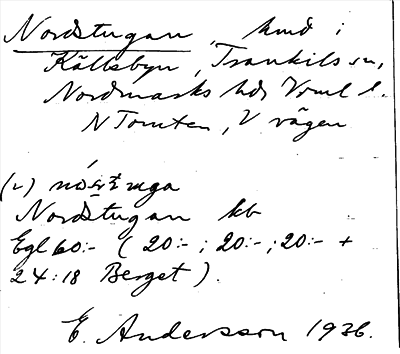 Nordstugan, hmd i
Källsbyn, Trankils sn,
Nordmarks hd, Vrml l.
N Tomten, V vägen
(v) nós̄tuga
Nordstugan kb
Egl 60:- (20:-; 20:-; 20:- +
24:18 Berget).
E. Andersson 1936.